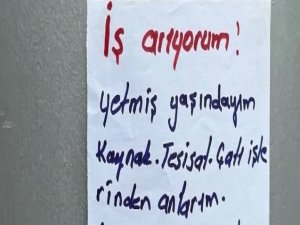 İş arıyorum!
yetmiş yaşındayım
Kaynak. Tesisat. Çatı işle
rinden anlarım.